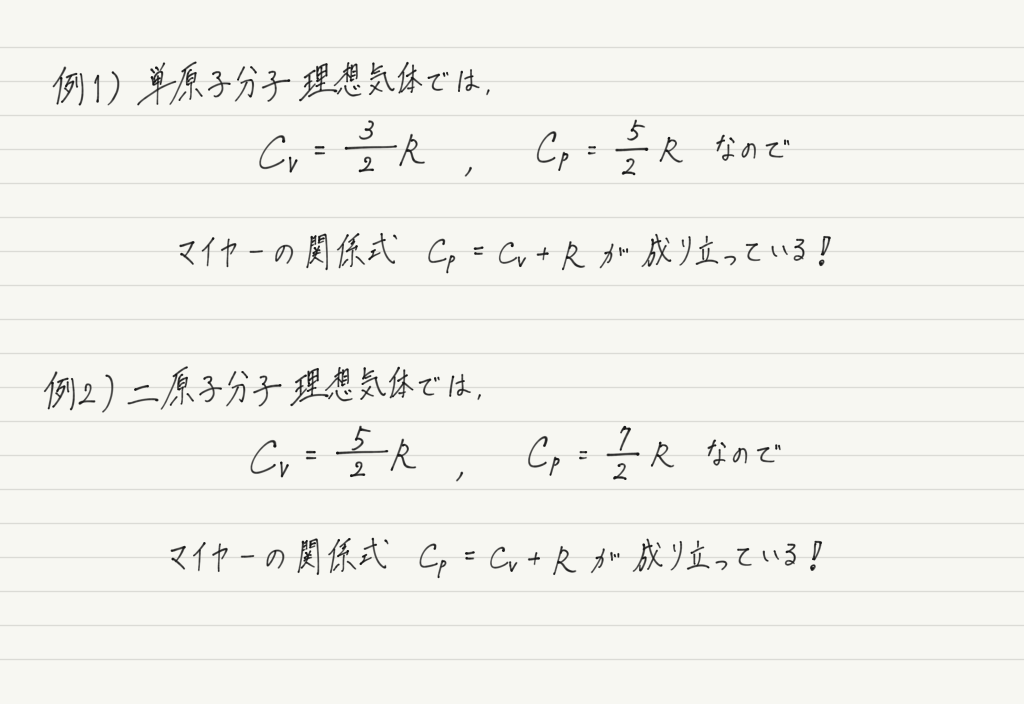 例1) 単原子分子理想気体では,
Cv = 3/2 R , Cp = 5/2 R なので
マイヤーの関係式 Cp = Cv + R が成り立っている!
例2) 二原子分子理想気体では,
Cv = 5/2 R , Cp = 7/2 R なので
マイヤーの関係式 Cp = Cv + R が成り立っている!